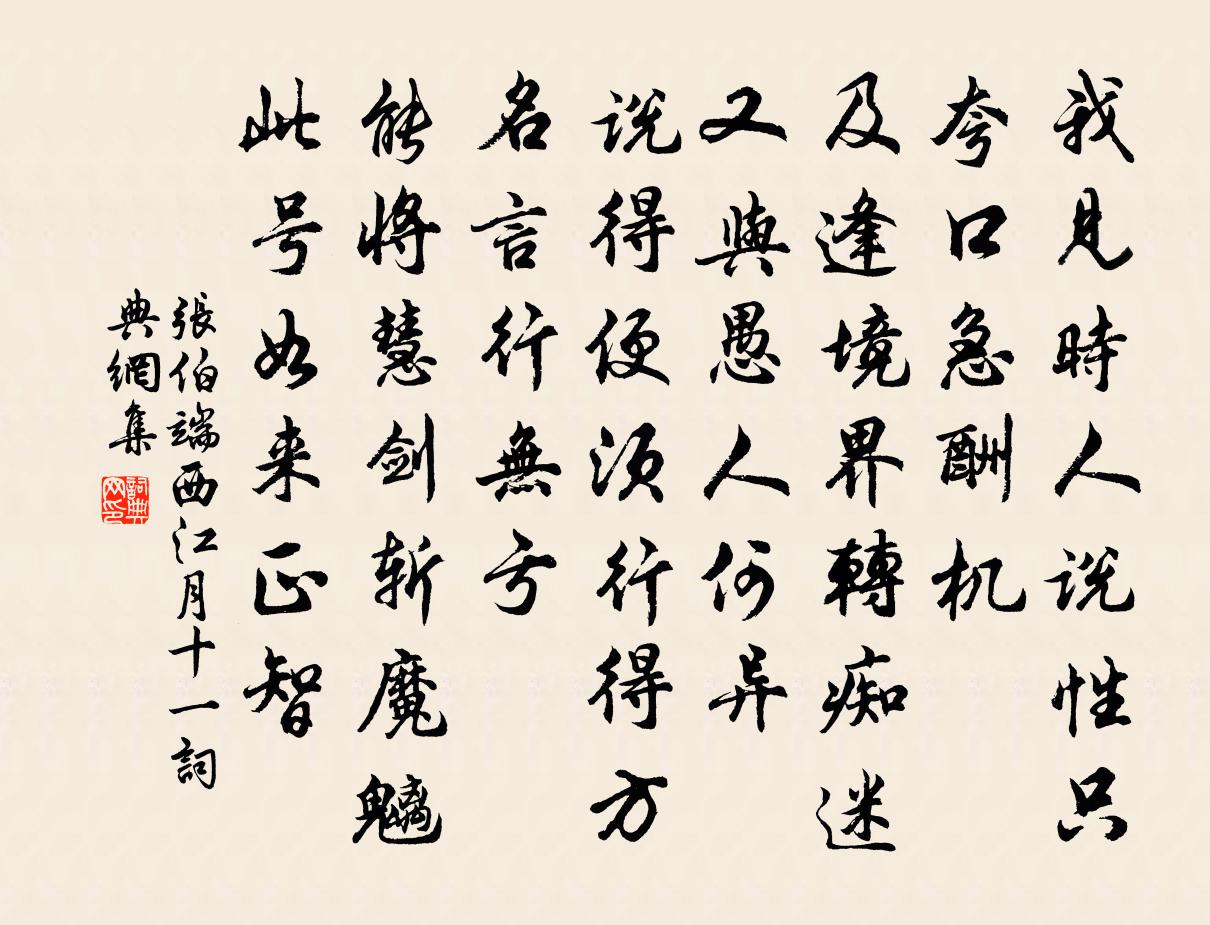 我見時人説性只
夸口急酬机
及逢境界轉痴迷
又與愚人何异
説得便須行得方
名言行無亏
能將慧剑斬魔魑
此号如来正智
張伯端西江月十一詞
典網集
詞典网印